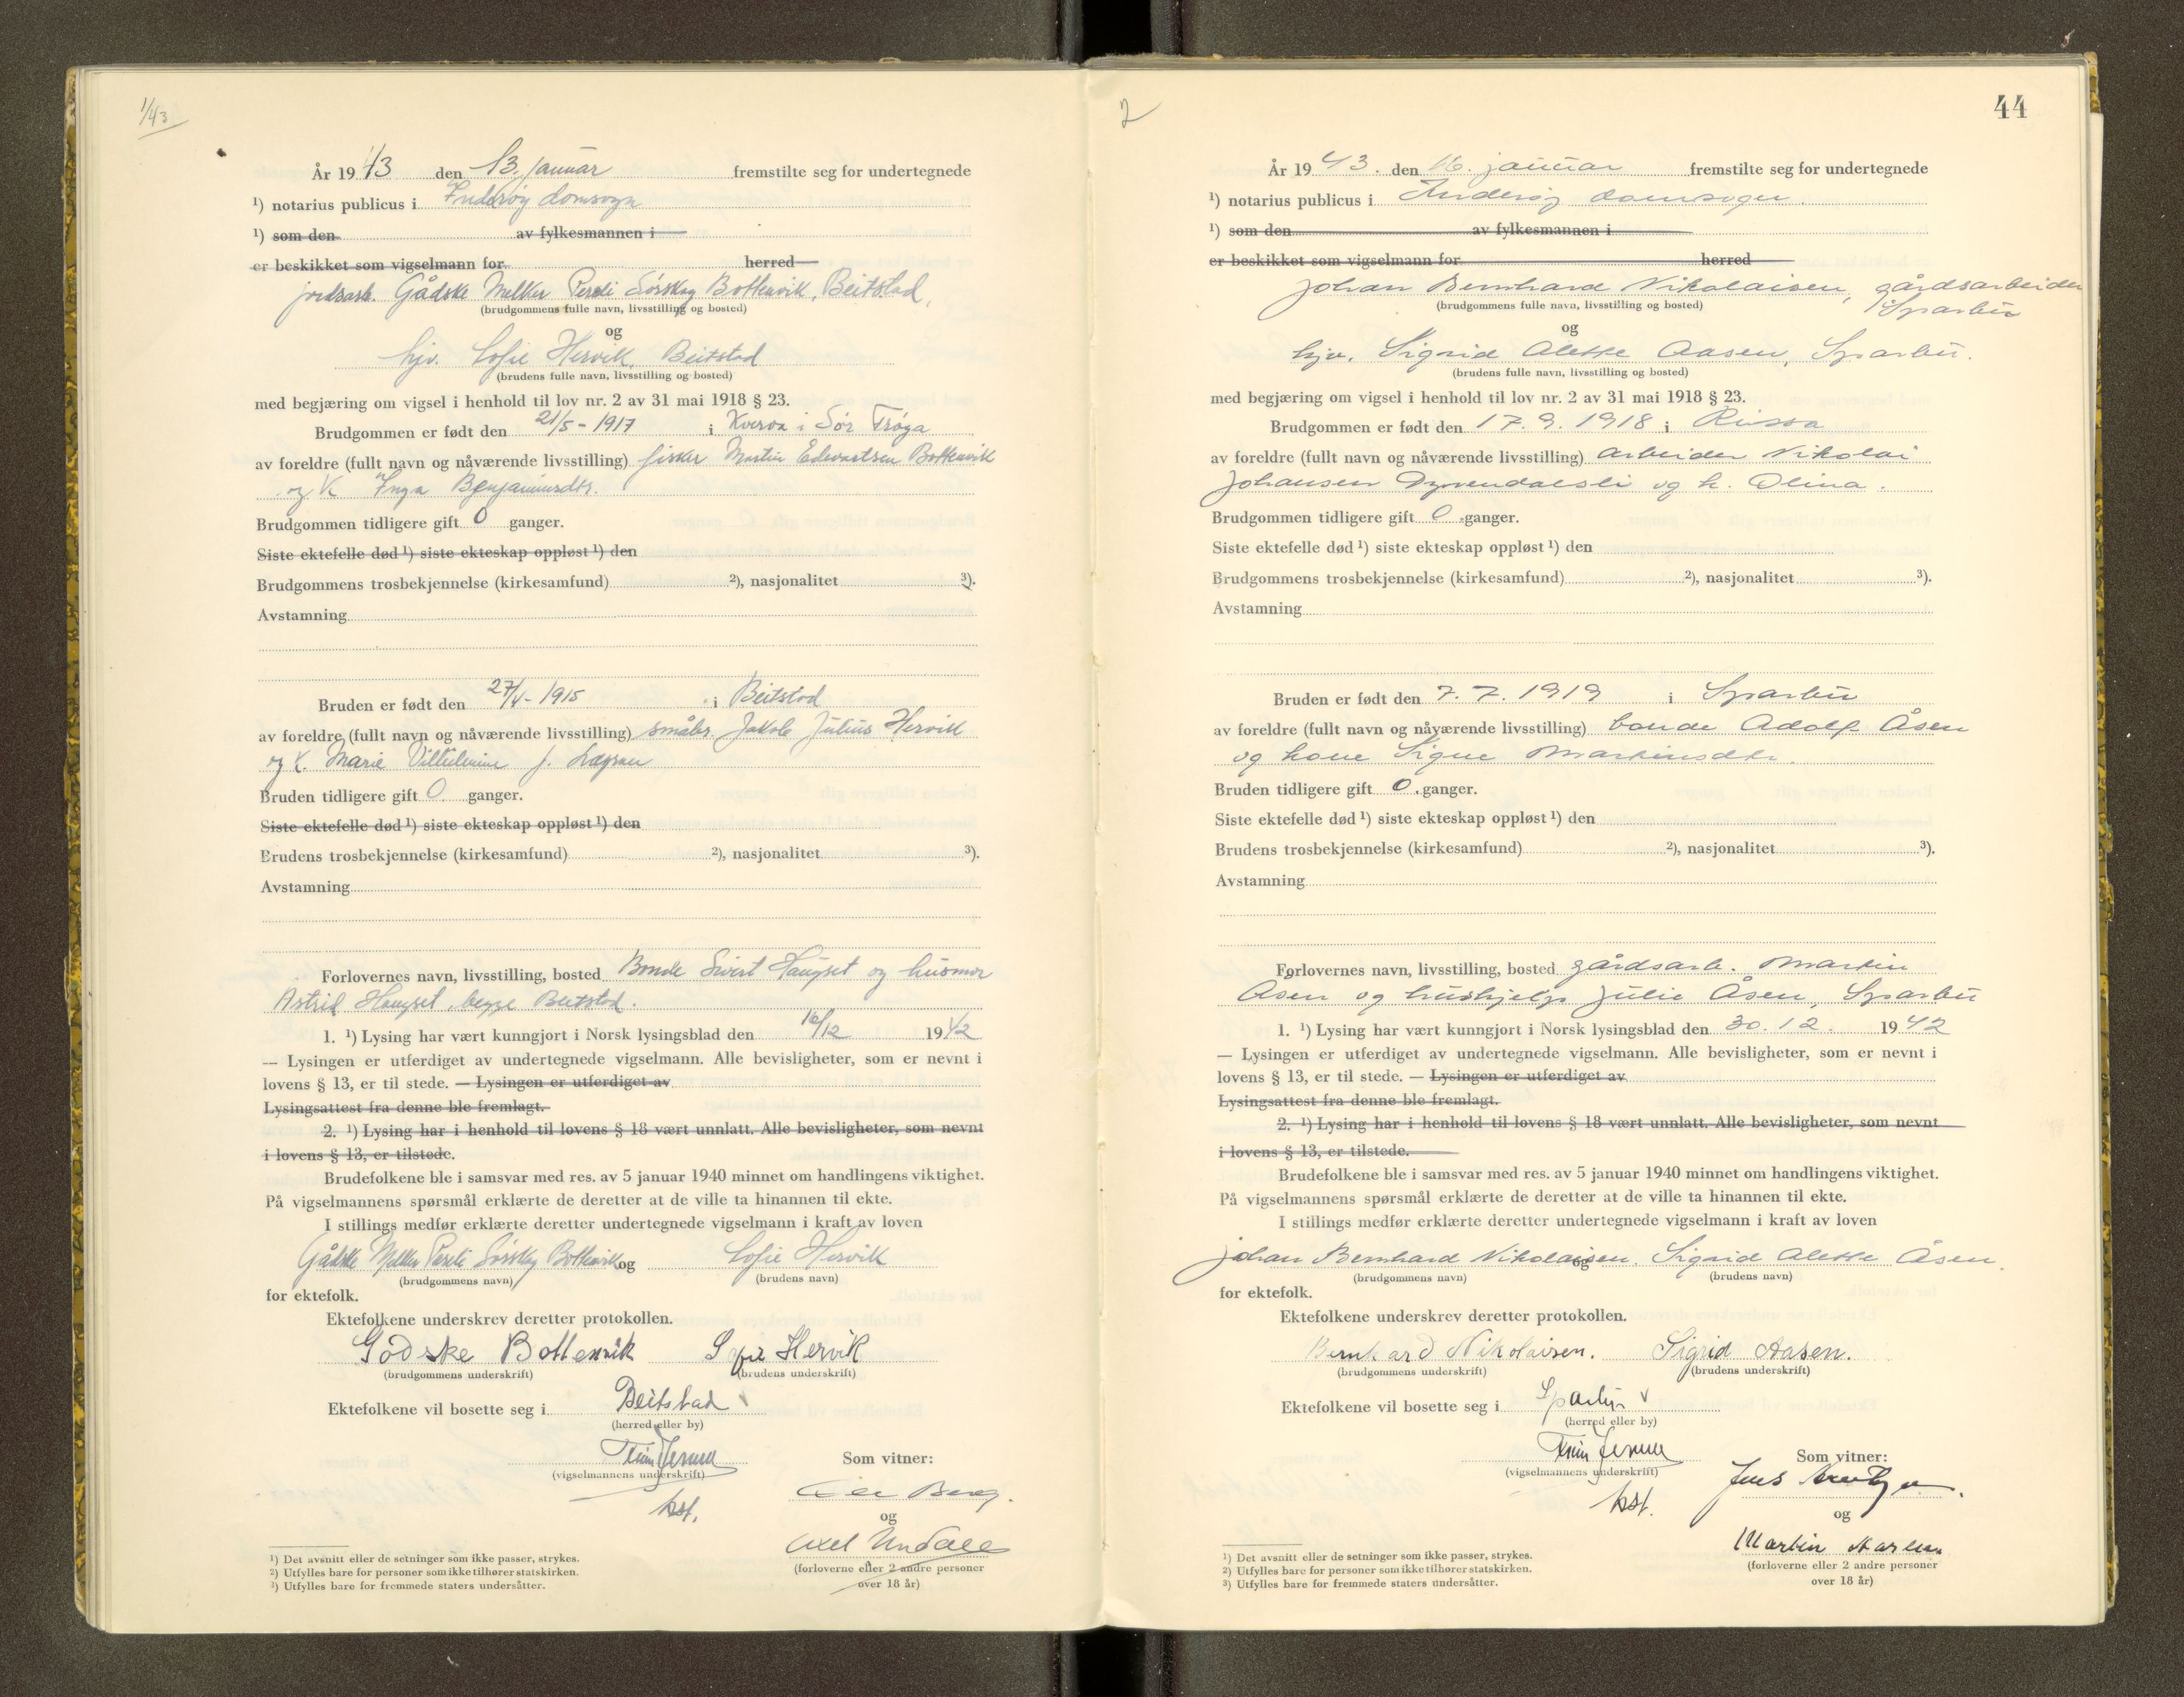 1/43
År 1943 den 13. januar fremstilte seg for undertegnede
¹) notarius publicus i Inderøy domsogn
¹) som den av fylkesmannen i
er beskikket som vigselmann for herred
jordsarb. Gådske Melker Perdi Sørskag Bottenvik, Beitstad,
(brudgommens fulle navn, livsstilling og bosted)
og
hjv. Sofie Hervik, Beitstad
(brudens fulle navn, livsstilling og bosted)
med begjæring om vigsel i henhold til lov nr. 2 av 31 mai 1918 § 23.
Brudgommen er født den 21/5 - 1917 i Kverva i Sør Frøya
av foreldre (fullt navn og nåværende livsstilling) fisker Martin Edvartsen Bottenvik
og k Inga Benjaminsdtr.
Brudgommen tidligere gift 0 ganger.
Siste ektefelle død ¹) siste ekteskap oppløst ¹) den
Brudgommens trosbekjennelse (kirkesamfund) ²), nasjonalitet ³).
Avstamning
Bruden er født den 27/4 - 1915 i Beitstad
av foreldre (fullt navn og nåværende livsstilling) småbr. Jakob Julius Hervik
og k. Marie Vilhelmine f.
Bruden tidligere gift 0 ganger.
Siste ektefelle død ¹) siste ekteskap oppløst ¹) den
Brudens trosbekjennelse (kirkesamfund) ²), nasjonalitet ³).
Avstamning
Forlovernes navn, livsstilling, bosted Bonde Sivert Haugset og husmor
Astrid Haugset, begge Beitstad.
1. ¹) Lysing har vært kunngjort i Norsk lysingsblad den 16/12 1942
— Lysingen er utferdiget av undertegnede vigselmann. Alle bevisligheter, som er nevnt i
lovens § 13, er til stede. — Lysingen er utferdiget av
Lysingsattest fra denne ble fremlagt.
2. ¹) Lysing har i henhold til lovens § 18 vært unnlatt. Alle bevisligheter, som nevnt
i lovens § 13, er tilstede.
Brudefolkene ble i samsvar med res. av 5 januar 1940 minnet om handlingens viktighet.
På vigselmannens spørsmål erklærte de deretter at de ville ta hinannen til ekte.
I stillings medfør erklærte deretter undertegnede vigselmann i kraft av loven
Gådske Melker Perdi Sørskag Bottenvik og Sofie Hervik
(brudgommens navn) (brudens navn)
for ektefolk.
Ektefolkene underskrev deretter protokollen.
Godske Bottenvik Sofie Hervik
(brudgommens underskrift) (brudens underskrift)
Ektefolkene vil bosette seg i Beitstad
(herred eller by)
Som vitner:
(vigselmannens underskrift)
kst.
Berg.
og
Axel Undall
(forloverne eller 2 andre personer
over 18 år)
¹) Det avsnitt eller de setninger som ikke passer, strykes.
²) Utfylles bare for personer som ikke tilhører statskirken.
³) Utfylles bare for fremmede staters undersåtter.
2
44
År 1943. den 16. januar fremstilte seg for undertegnede
¹) notarius publicus i Inderøy domsogn.
¹) som den av fylkesmannen i
er beskikket som vigselmann for herred
Johan Bernhard Nikolaisen, gårdsarbeider
Sparbu
(brudgommens fulle navn, livsstilling og bosted)
og
hjv. Sigrid Alette Aasen, Sparbu.
(brudens fulle navn, livsstilling og bosted)
med begjæring om vigsel i henhold til lov nr. 2 av 31 mai 1918 § 23.
Brudgommen er født den 17. 9. 1918 i Rissa
av foreldre (fullt navn og nåværende livsstilling) arbeider Nikolai
Johansen Dyrendalsli og h. Olina.
Brudgommen tidligere gift 0 ganger.
Siste ektefelle død ¹) siste ekteskap oppløst ¹) den
Brudgommens trosbekjennelse (kirkesamfund) ²), nasjonalitet ³).
Avstamning
Bruden er født den 7. 7. 1919 i Sparbu
av foreldre (fullt navn og nåværende livsstilling) bonde Adolf Åsen
og kone Signe Martinsdtr.
Bruden tidligere gift 0. ganger.
Siste ektefelle død ¹) siste ekteskap oppløst ¹) den
Brudens trosbekjennelse (kirkesamfund) ²), nasjonalitet ³).
Avstamning
Forlovernes navn, livsstilling, bosted gårdsarb. Martin
Åsen og hushjelp Julie Åsen, Sparbu
1. ¹) Lysing har vært kunngjort i Norsk lysingsblad den 30. 12. 1942
— Lysingen er utferdiget av undertegnede vigselmann. Alle bevisligheter, som er nevnt i
lovens § 13, er til stede. — Lysingen er utferdiget av
Lysingsattest fra denne ble fremlagt.
2. ¹) Lysing har i henhold til lovens § 18 vært unnlatt. Alle bevisligheter, som nevnt
i lovens § 13, er tilstede.
Brudefolkene ble i samsvar med res. av 5 januar 1940 minnet om handlingens viktighet.
På vigselmannens spørsmål erklærte de deretter at de ville ta hinannen til ekte.
I stillings medfør erklærte deretter undertegnede vigselmann i kraft av loven
Johan Bernhard Nikolaisen. og Sigrid Alette Åsen.
(brudgommens navn) (brudens navn)
for ektefolk.
Ektefolkene underskrev deretter protokollen.
Bernhard Nikolaisen. Sigrid Aasen.
(brudgommens underskrift) (brudens underskrift)
Ektefolkene vil bosette seg i Sparbu
(herred eller by)
Som vitner:
(vigselmannens underskrift)
kst.
Jens
og
Martin
(forloverne eller 2 andre personer
over 18 år)
¹) Det avsnitt eller de setninger som ikke passer, strykes.
²) Utfylles bare for personer som ikke tilhører statskirken.
³) Utfylles bare for fremmede staters undersåtter.